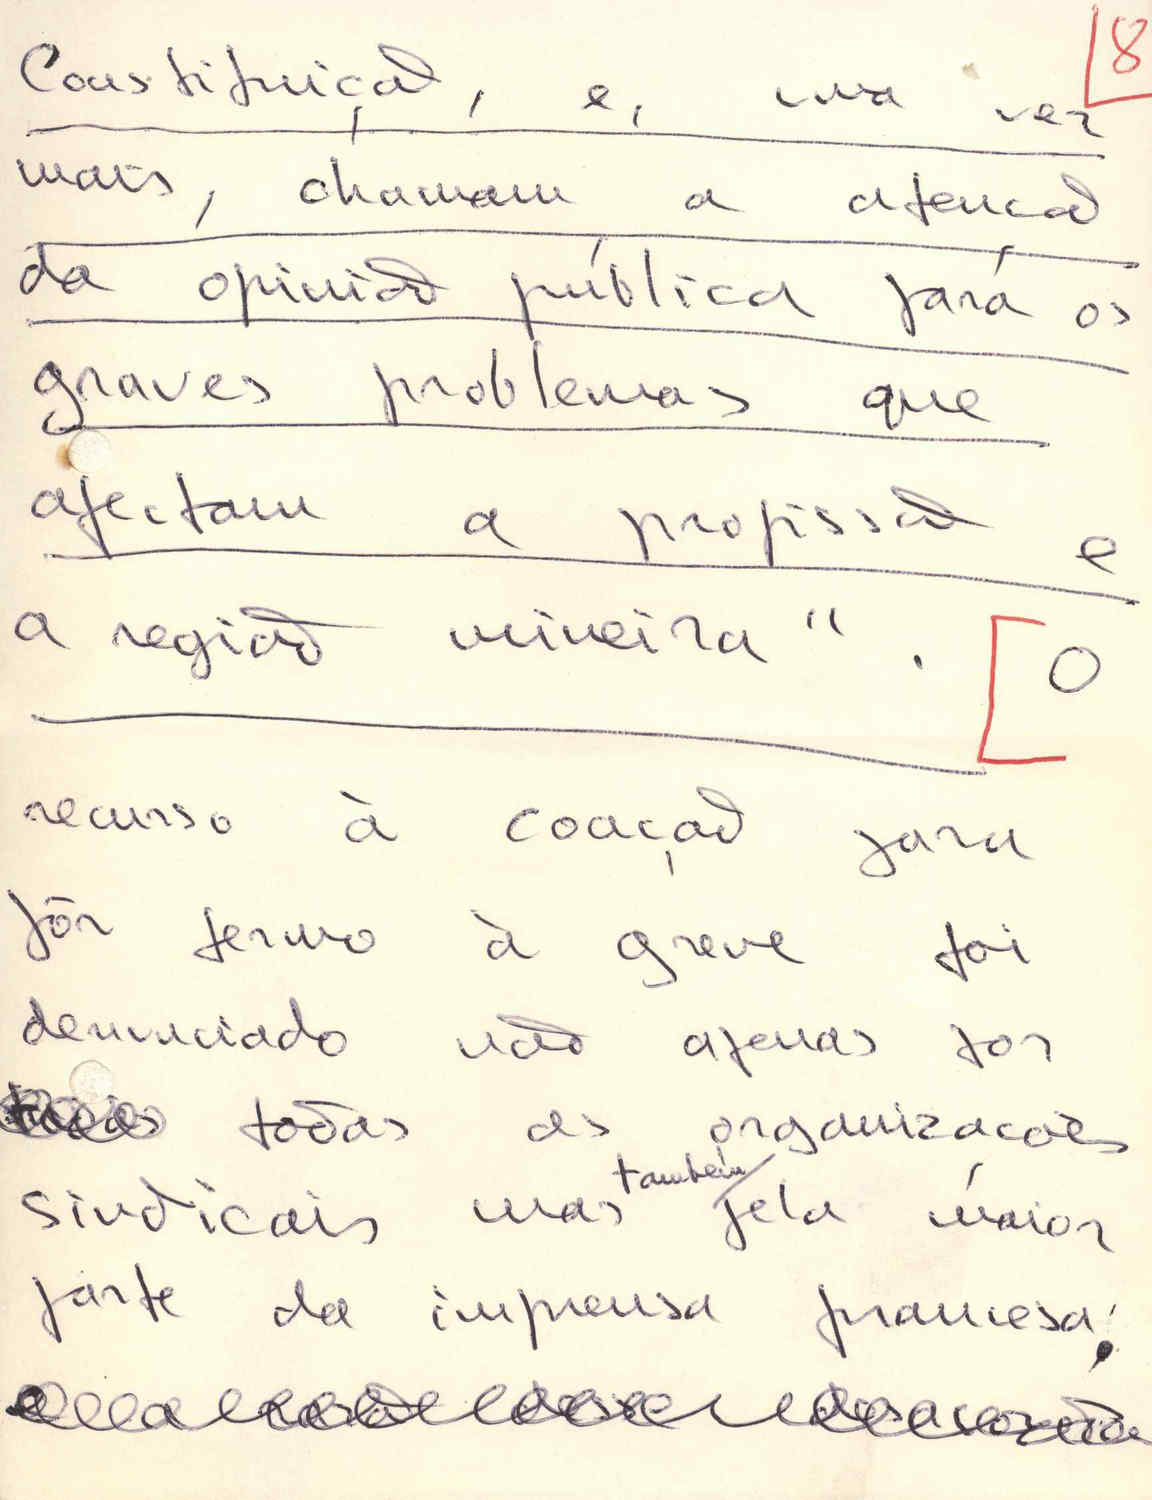 8
Constituição, e, uma vez
mais, chamam a atencão
da opinião pública pará os
graves problemas que
afectam a profissão e
a região mineira". [O
recurso à coação para
pôr termo à greve foi
denunciado não apenas por
todas as organizacões
sindicais mas também pela maior
parte da imprensa francesa,